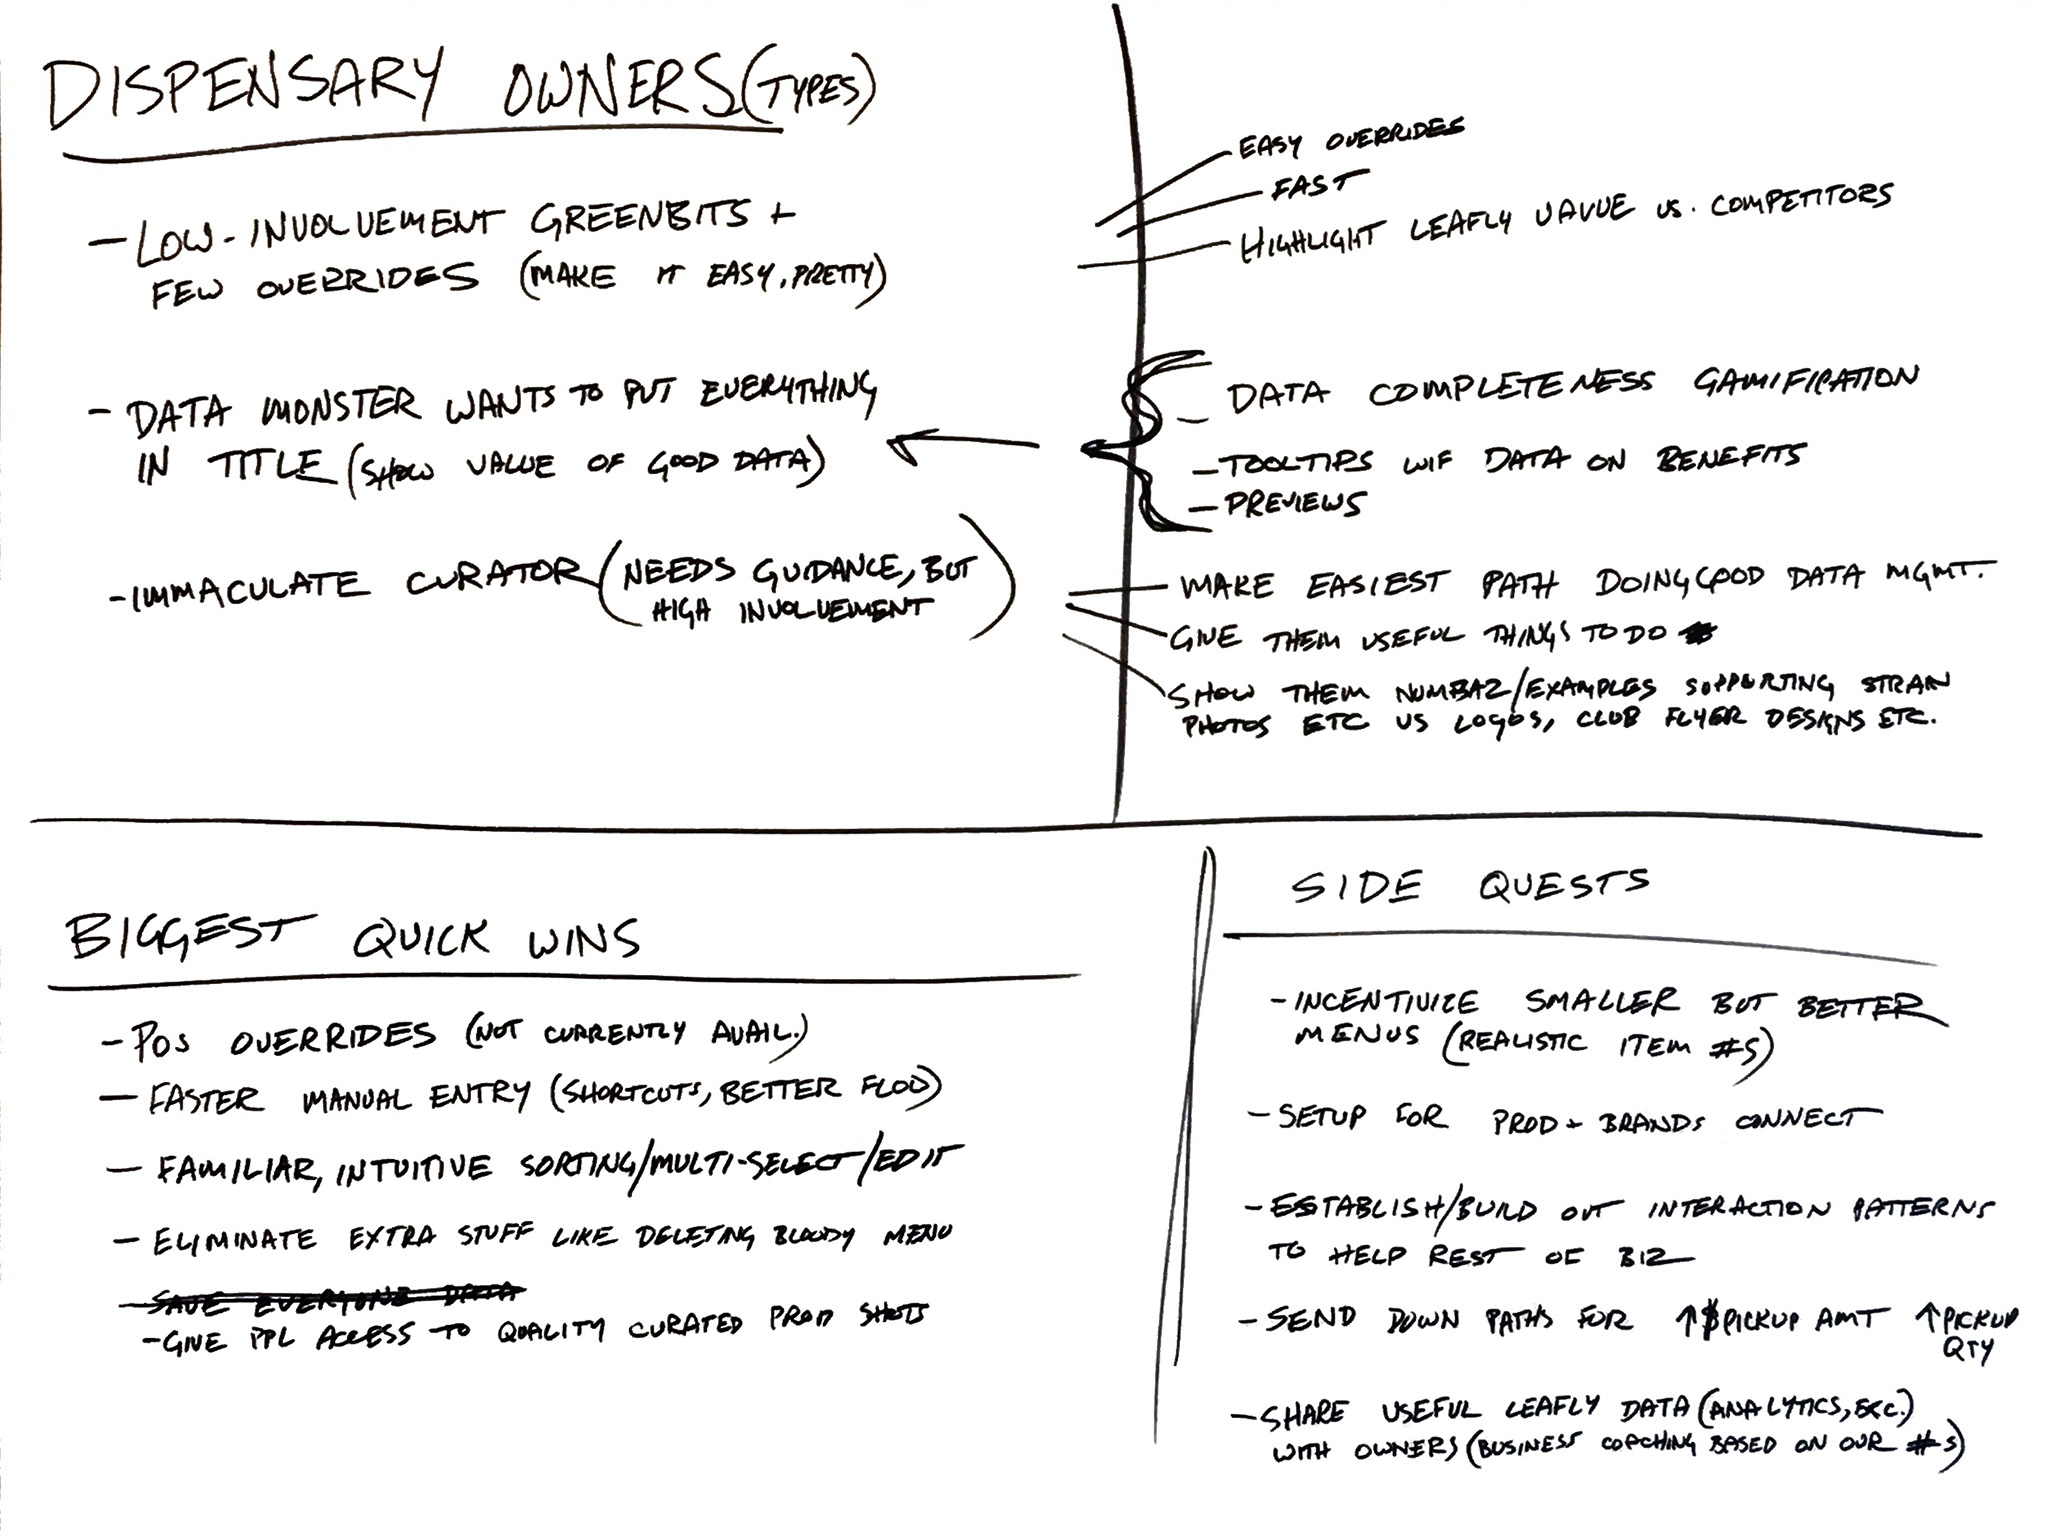 DISPENSARY OWNERS (TYPES)
- LOW-INVOLVEMENT GREENBITS +
FEW OVERRIDES (MAKE IT EASY, PRETTY)
- DATA MONSTER WANTS TO PUT EVERYTHING
IN TITLE (SHOW VALUE OF GOOD DATA)
- IMMACULATE CURATOR (NEEDS GUIDANCE, BUT
HIGH INVOLVEMENT)
EASY OVERRIDES
FAST
HIGHLIGHT LEAFLY VALUE VS. COMPETITORS
- DATA COMPLETENESS GAMIFICATION
- TOOLTIPS WIF DATA ON BENEFITS
- PREVIEWS
MAKE EASIEST PATH DOING GOOD DATA MGMT.
GIVE THEM USEFUL THINGS TO DO
SHOW THEM NUMBAZ/EXAMPLES SUPPORTING STRAIN
PHOTOS ETC VS LOGOS, CLUB FLYER DESIGNS ETC.
BIGGEST QUICK WINS
- POS OVERRIDES (NOT CURRENTLY AVAIL.)
- FASTER MANUAL ENTRY (SHORTCUTS, BETTER FLOW)
- FAMILIAR, INTUITIVE SORTING/MULTI-SELECT/EDIT
- ELIMINATE EXTRA STUFF LIKE DELETING BLOODY MENU
- SAVE EVERYONE DATA
- GIVE PPL ACCESS TO QUALITY CURATED PROD SHOTS
SIDE QUESTS
- INCENTIVIZE SMALLER BUT BETTER
MENUS (REALISTIC ITEM #S)
- SETUP FOR PROD + BRANDS CONNECT
- ESTABLISH/BUILD OUT INTERACTION PATTERNS
TO HELP REST OF BIZ
- SEND DOWN PATHS FOR ↑$PICKUP AMT ↑PICKUP
QTY
- SHARE USEFUL LEAFLY DATA (ANALYTICS, ETC.)
WITH OWNERS (BUSINESS COACHING BASED ON OUR #S)